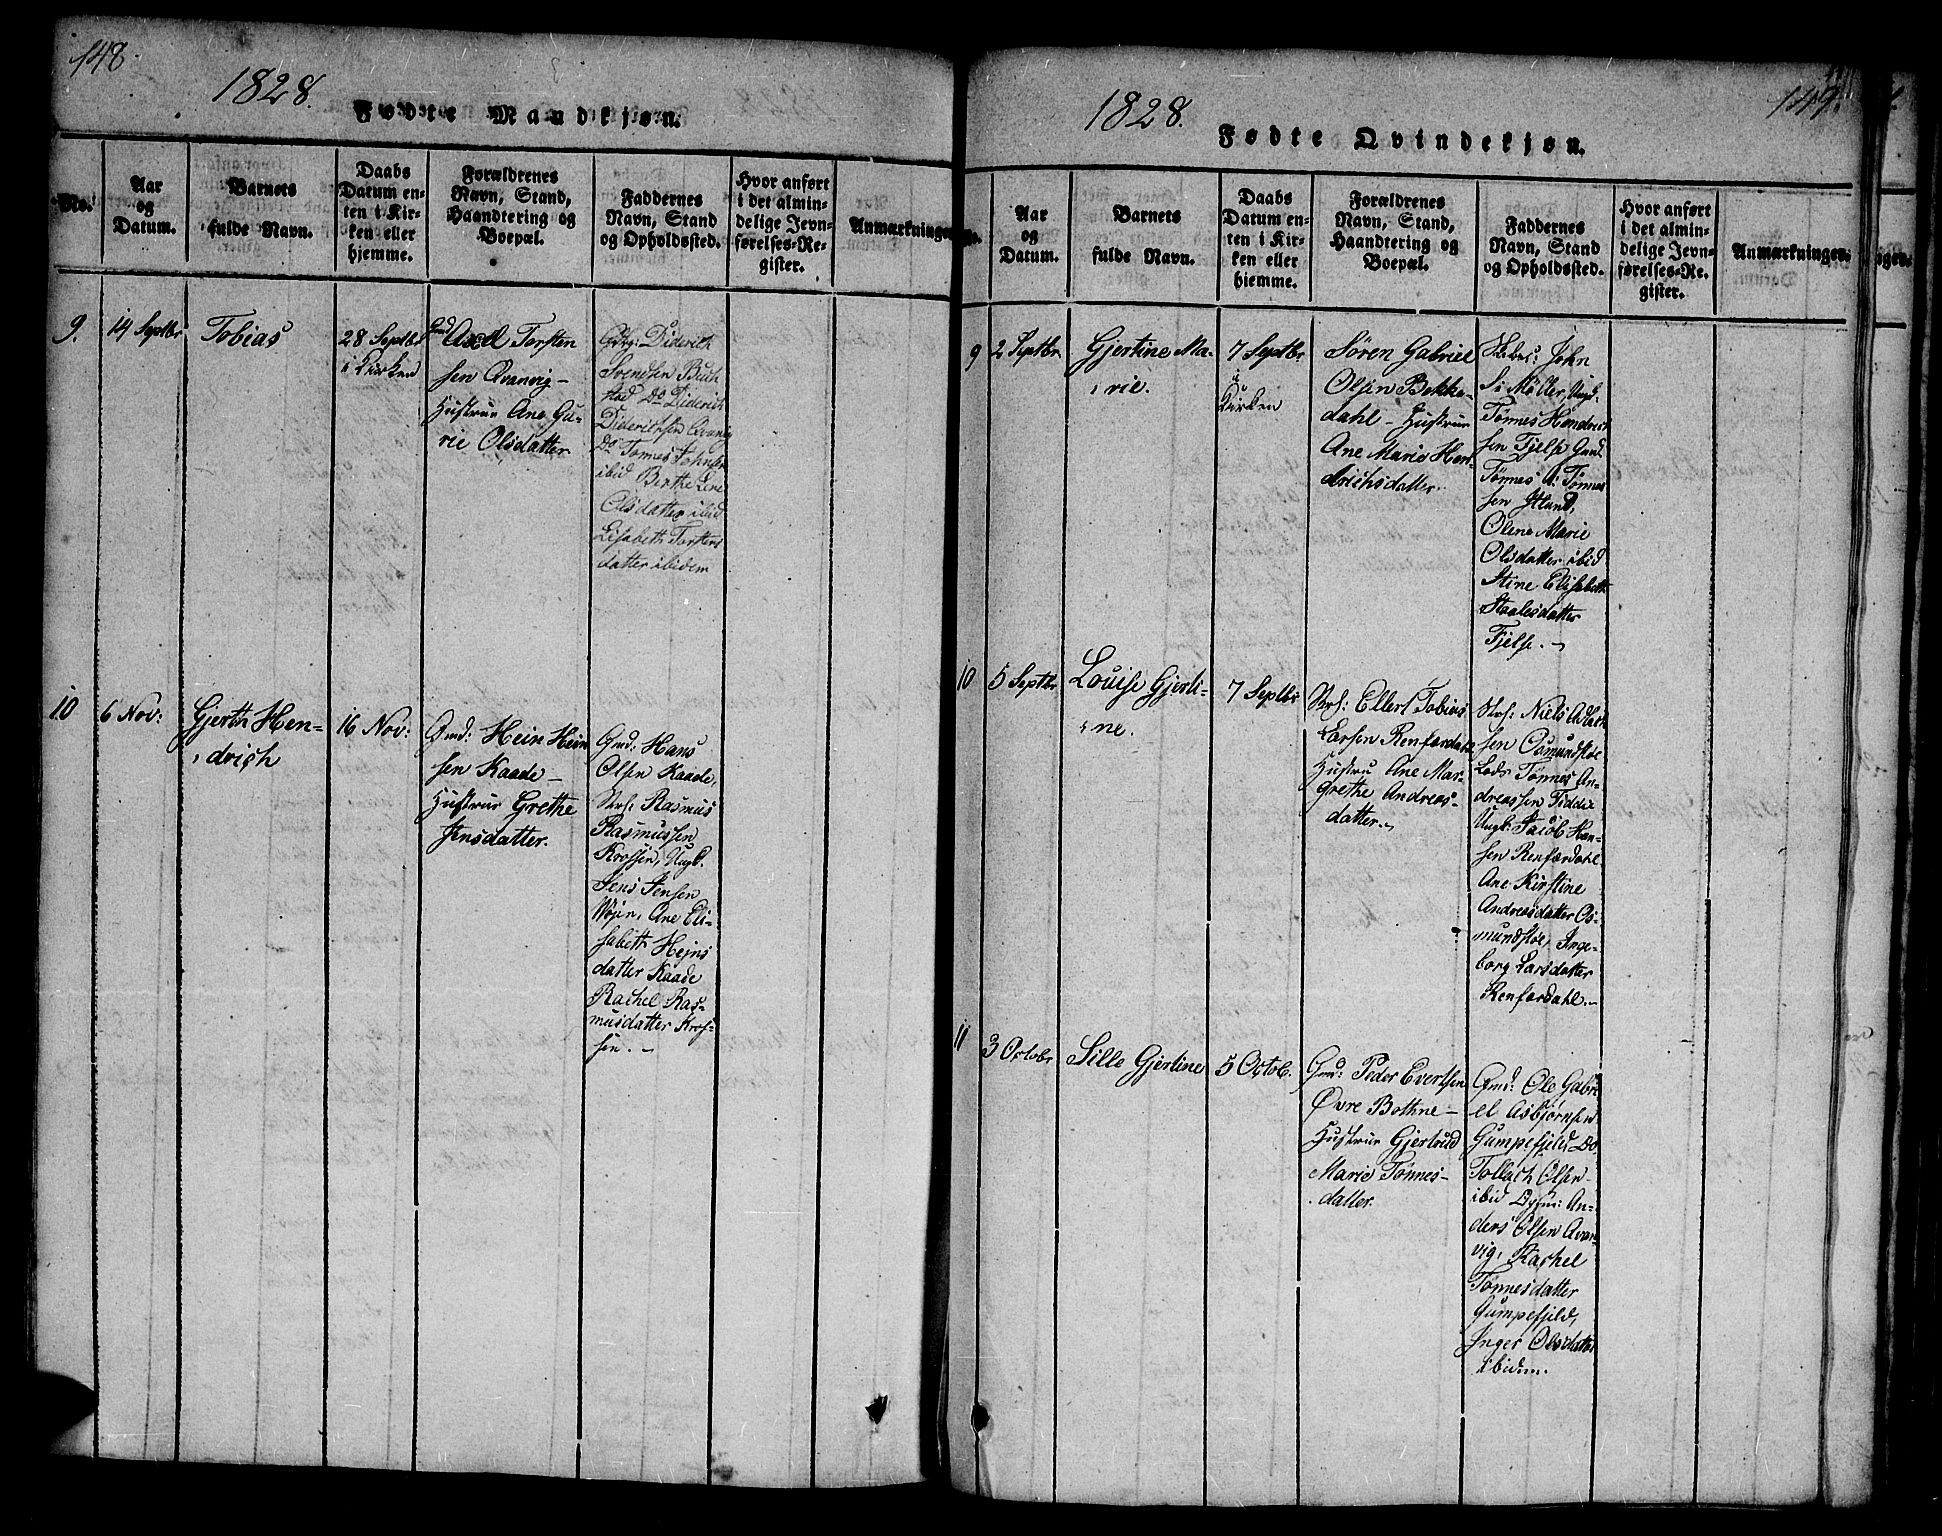 148.
1828.
Fødte Mandkjøn.
No.
Aar
og
Datum.
Barnets
fulde Navn.
Daabs
Datum en-
ten i Kir-
ken eller
hjemme.
Forældrenes
Navn, Stand,
Haandtering og
Boepæl.
Faddernes
Navn, Stand
og Opholdssted.
Hvor anført
i det almin-
delige Jevn-
førelses-Re-
gister.
Anmærkninger
9.
14 Septbr
Tobias
28 Septbr
i Kirken
Gmd Axel Torsten
sen Qvanvig –
Hustrue Ane Gu-
rie Olsdatter
Diderich
Svendsen Buch
stad Do Diderich
Diderichsen Qvanvig
Do Tønnes Johnsen
ibid Berthe Lene
Olsdatter ibid
Elisabeth Torstens
datter ibidem
10
6 Nov:
Gjerth Hen-
drich
16 Nov:
Gmd: Hein Hein
sen Kaade –
Hustrue Grethe
Jensdatter.
Gmd: Hans
Olsen Kaade,
Strs: Rasmus
Rasmussen
Krossen, Ungk.
Jens Jensen
Ane Eli-
sabeth Hejns
datter Kaade
Rachel Ras-
musdatter Kros-
sen. –
1828.
149.
Fødte Qvindekjøn.
No.
Aar
og
Datum.
Barnets
fulde Navn.
Daabs
Datum en-
ten i Kir-
ken eller
hjemme.
Forældrenes
Navn, Stand,
Haandtering og
Boepæl.
Faddernes
Navn, Stand
og Opholdssted.
Hvor anført
i det almin-
delige Jevn-
førelses-Re-
gister.
Anmærkninger.
9
2 Septbr.
Gjertine Ma-
rie.
7 Septbr
i
Kirken
Søren Gabriel
Olsen Bekke-
dahl – Hustrue
Ane Marie Hen-
drichsdatter.
John
S: Møller, Ungk.
Tønnes Hendrich
sen Fjelse Gmd.
Tønnes A: Tønnes
sen
Olene Marie
Olsdatter ibid
Stine Elisabeth
Staalesdatter
Fjelse. –
10
5 Septbr
Louise Gjerti-
ne.
7 Septbr
Strs: Ellert Tobias
Larsen Renfærdahl
Hustru Ane Mar-
grethe Andreas-
datter. –
Strs: Niels
sen Osmundstøe
Lods Tønnes An-
dreassen Fedde
Ungk: Jacob Han-
sen Renfærdahl
Ane Kirstine
Andreasdatter Os-
mundstøe, Inge-
borg Larsdatter
Renfærdahl. –
11
3 Octobr
Sille Gjertine
5 Octob.
Gmd: Peder Evertsen
Øvre Bothne –
Hustrue Gjertrud
Marie Tønnes-
datter.
Gmd: Ole Gabri
el Asbjørnsen
Gumpefjeld, Do
Tollach Olsen
ibid An-
ders Olsen Qvan-
vig, Rachel
Tønnesdatter
Gumpefjeld,
Inger Olsdatter
ibidem.